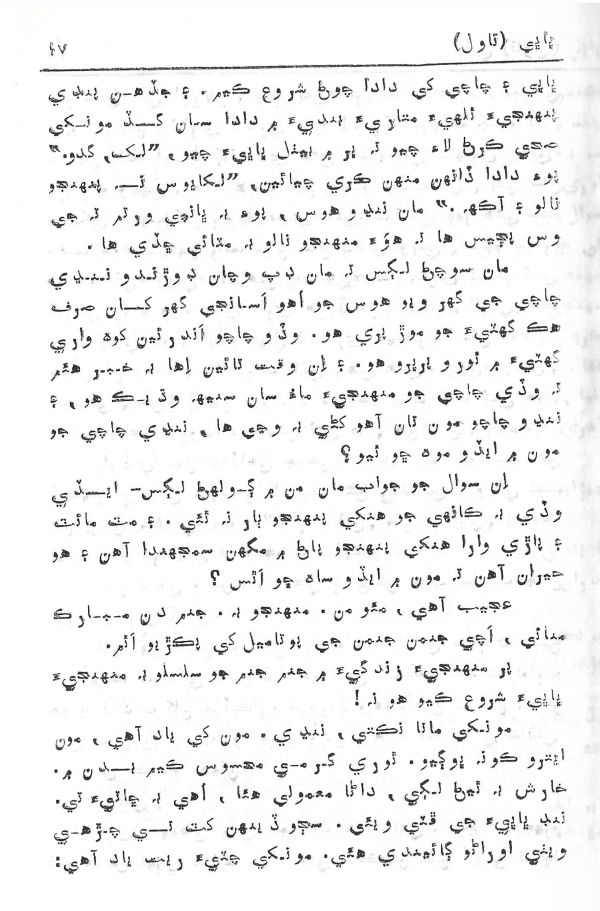 پاپي (ناول)
۱۷
پاپي ۽ چاچي کي دادا چوڻ شروع ڪيم. ۽ جڏهن ننڍي
پنهنجيءَ ٿلهيءَ متاريءَ ٻنڊيءَ ۾ دادا سان گڏ مونکي
صحي ڪرڻ لاءِ چيو ته پر ۾ ويٺل پاپيءَ چيو، ”لک، گدو.“
پوءِ دادا ڏانهن منهن ڪري چيائين، ”لکايوس ته پنهنجو
نالو ۽ آکهه.“ مان ننڍو هوس، پوءِ به پاڻهي ورتم ته جي
وس پڄيس ها ته هوءَ منهنجو نالو به مٽائي ڇڏي ها.
مان سوچڻ لڳس ته مان ڊپ وچان ڊوڙندو ننڍي
چاچي جي گهر ويو هوس جو اُهو اَسانجي گهر کان صرف
هڪ گهٽيءَ جو موڙ پري هو. وڏو چاچو اَندرئين کوهه واري
گهٽيءَ ۾ ٿورو پرڀرو هو. ۽ اِن وقت تائين اِها به خبر هئم
ته وڏي چاچي جو منهنجيءَ ماءُ سان سنيهه وڌيڪ هو، ۽
ننڍو چاچو مون تان آهو کڻي به وڃي ها، ننڍي چاچي جو
مون ۾ ايڏو موهه ڇو ٿيو؟
اِن سوال جو جواب مان من ۾ ڳولهڻ لڳس- ايڏي
وڏي به ڪانهي جو هنکي پنهنجو ٻار نه ٿئي. ۽ مٽ مائٽ
۽ پاڙي وارا هنکي پنهنجو پاڻ ۾ مگهن سمجهندا آهن ۽ هو
حيران آهن ته مون ۾ ايڏو ساهه ڇو اٿس؟
عجيب آهي، مئو من. منهنجو به. جنم دن مبارڪ
منائي، اَچي جنمن جنمن جي پوتاميل کي پڪڙيو اٿم.
پر منهنجيءَ زندگيءَ ۾ جنم جنم جو سلسلو به منهنجيءَ
پاپيءَ شروع ڪيو هو نه!
مونکي ماتا نڪتي، ننڍي. مون کي ياد آهي، مون
ايترو ڪونه ڀوڳيو. ٿوري گرمي محسوس ڪيم بدن ۾.
خارش به ٿيڻ لڳي، داڻا معمولي هئا، اُهي به ڇاتيءَ تي.
ننڊ پاپيءَ جي ڦٽي ويئي. سڄو ڏينهن کٽ تي چڙهي
ويٺي اوراڻو ڳائيندي هئي. مونکي چٽيءَ ريت ياد آهي: